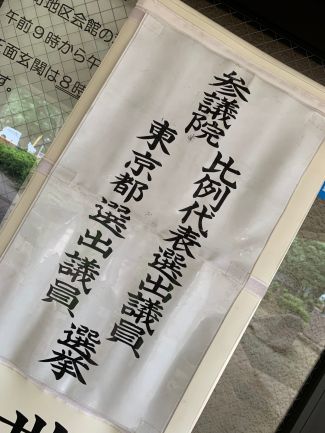 参議院 比例代表選出議員
東京都 選出議員 選挙
町地区会館の
午前9時から午
正面玄関は8時
す。